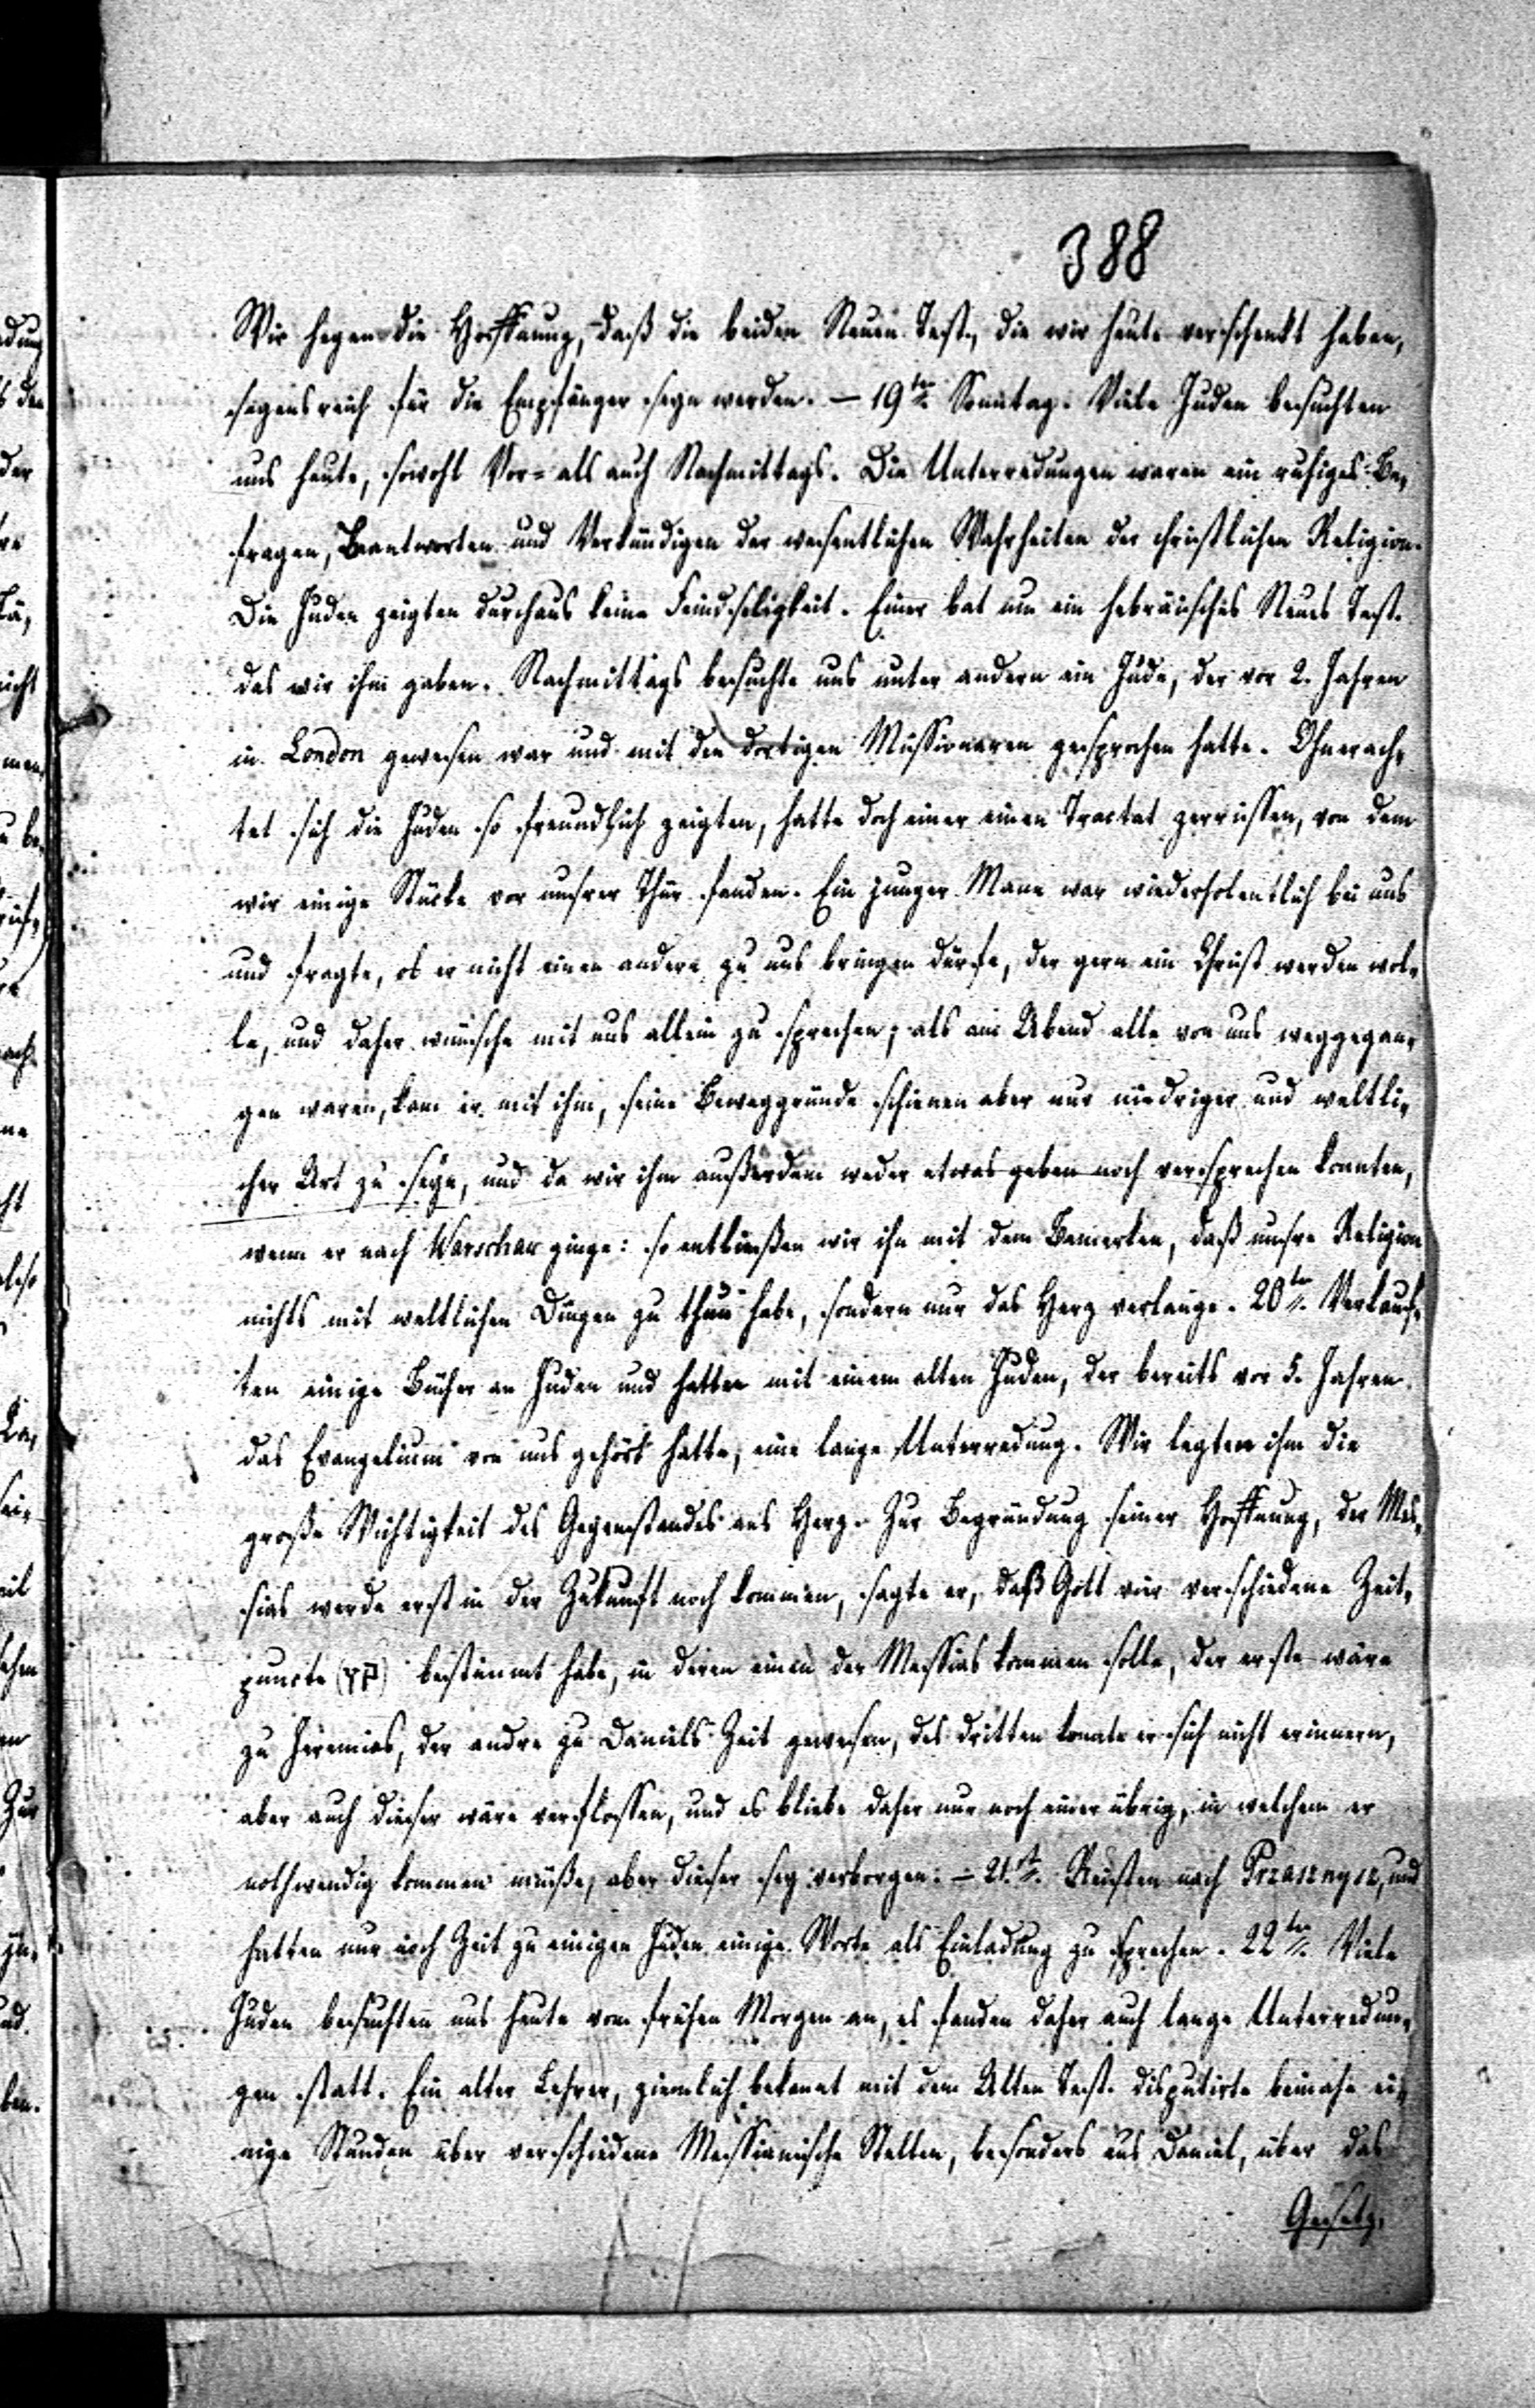 388
Wir hegen die Hoffnung, daß die beiden Neuen Test., die wir heute verschenkt haben,
segensreich für die Empfänger seyn werden. — 19ten Sonntag. Viele Juden besuchten
uns heute, sowohl Vor- als auch Nachmittags. Die Unterredungen waren ein ruhiges Be-
fragen, Beantworten und Verkündigen der wesentlichen Wahrheiten der christlichen Religion.
Die Juden zeigten durchaus keine Feindseligkeit. Einer bat um ein hebräisches Neues Test.
das wir ihm gaben. Nachmittags besuchte uns unter andern ein Jude, der vor 2. Jahren
in London gewesen war und mit den dortigen Missionaren gesprochen hatte. Ohnerach-
tet sich die Juden so freundlich zeigten, hatte doch einer einen Tractat zerrissen, von dem
wir einige Stücke vor unsrer Thür fanden. Ein junger Mann war wiederholentlich bei uns
und fragte, ob er nicht einen andern zu uns bringen dürfe, der gern ein Christ werden wol-
le, und daher wünsche mit uns allein zu sprechen; als am Abend alle von uns weggegan-
gen waren, kam er mit ihm, seine Beweggründe schienen aber nur niedriger und weltli-
cher Art zu seyn, und da wir ihm außerdem weder etwas geben noch versprechen konnten,
wenn er nach Warschau ginge: so entließen wir ihn mit dem Bemerken, daß unsre Religion
nichts mit weltlichen Dingen zu thun habe, sondern nur das Herz verlange. 20ten Verkauf-
ten einige Bücher an Juden und hatten mit einem alten Juden, der bereits vor 5. Jahren
das Evangelium von uns gehört hatte, eine lange Unterredung. Wir legten ihm die
große Wichtigkeit des Gegenstandes ans Herz. Zur Begründung seiner Hoffnung, der Mes-
sias werde erst in der Zukunft noch kommen, sagte er, daß Gott vier verschiedene Zeit-
puncte (קץ) bestimmt habe, in deren einem der Messias kommen solle, der erste wäre
zu Jeremias, der andre zu Daniels Zeit gewesen, des dritten konnte er sich nicht erinnern,
aber auch dieser wäre verflossen, und es bliebe daher nur noch einer übrig, in welchem er
nothwendig kommen müße, aber dieser sey verborgen. — 21.st. Reisten nach Przasznysz, und
hatten nur noch Zeit zu einigen Juden einige Worte als Einladung zu sprechen. 22ten Viele
Juden besuchten uns heute vom frühen Morgen an, es fanden daher auch lange Unterredun-
gen statt. Ein alter Lehrer, ziemlich bekannt mit dem Alten Test. disputirte beinahe ei-
nige Stunden über verschiedene Messianische Stellen, besonders aus Daniel, über das
Gesetz,